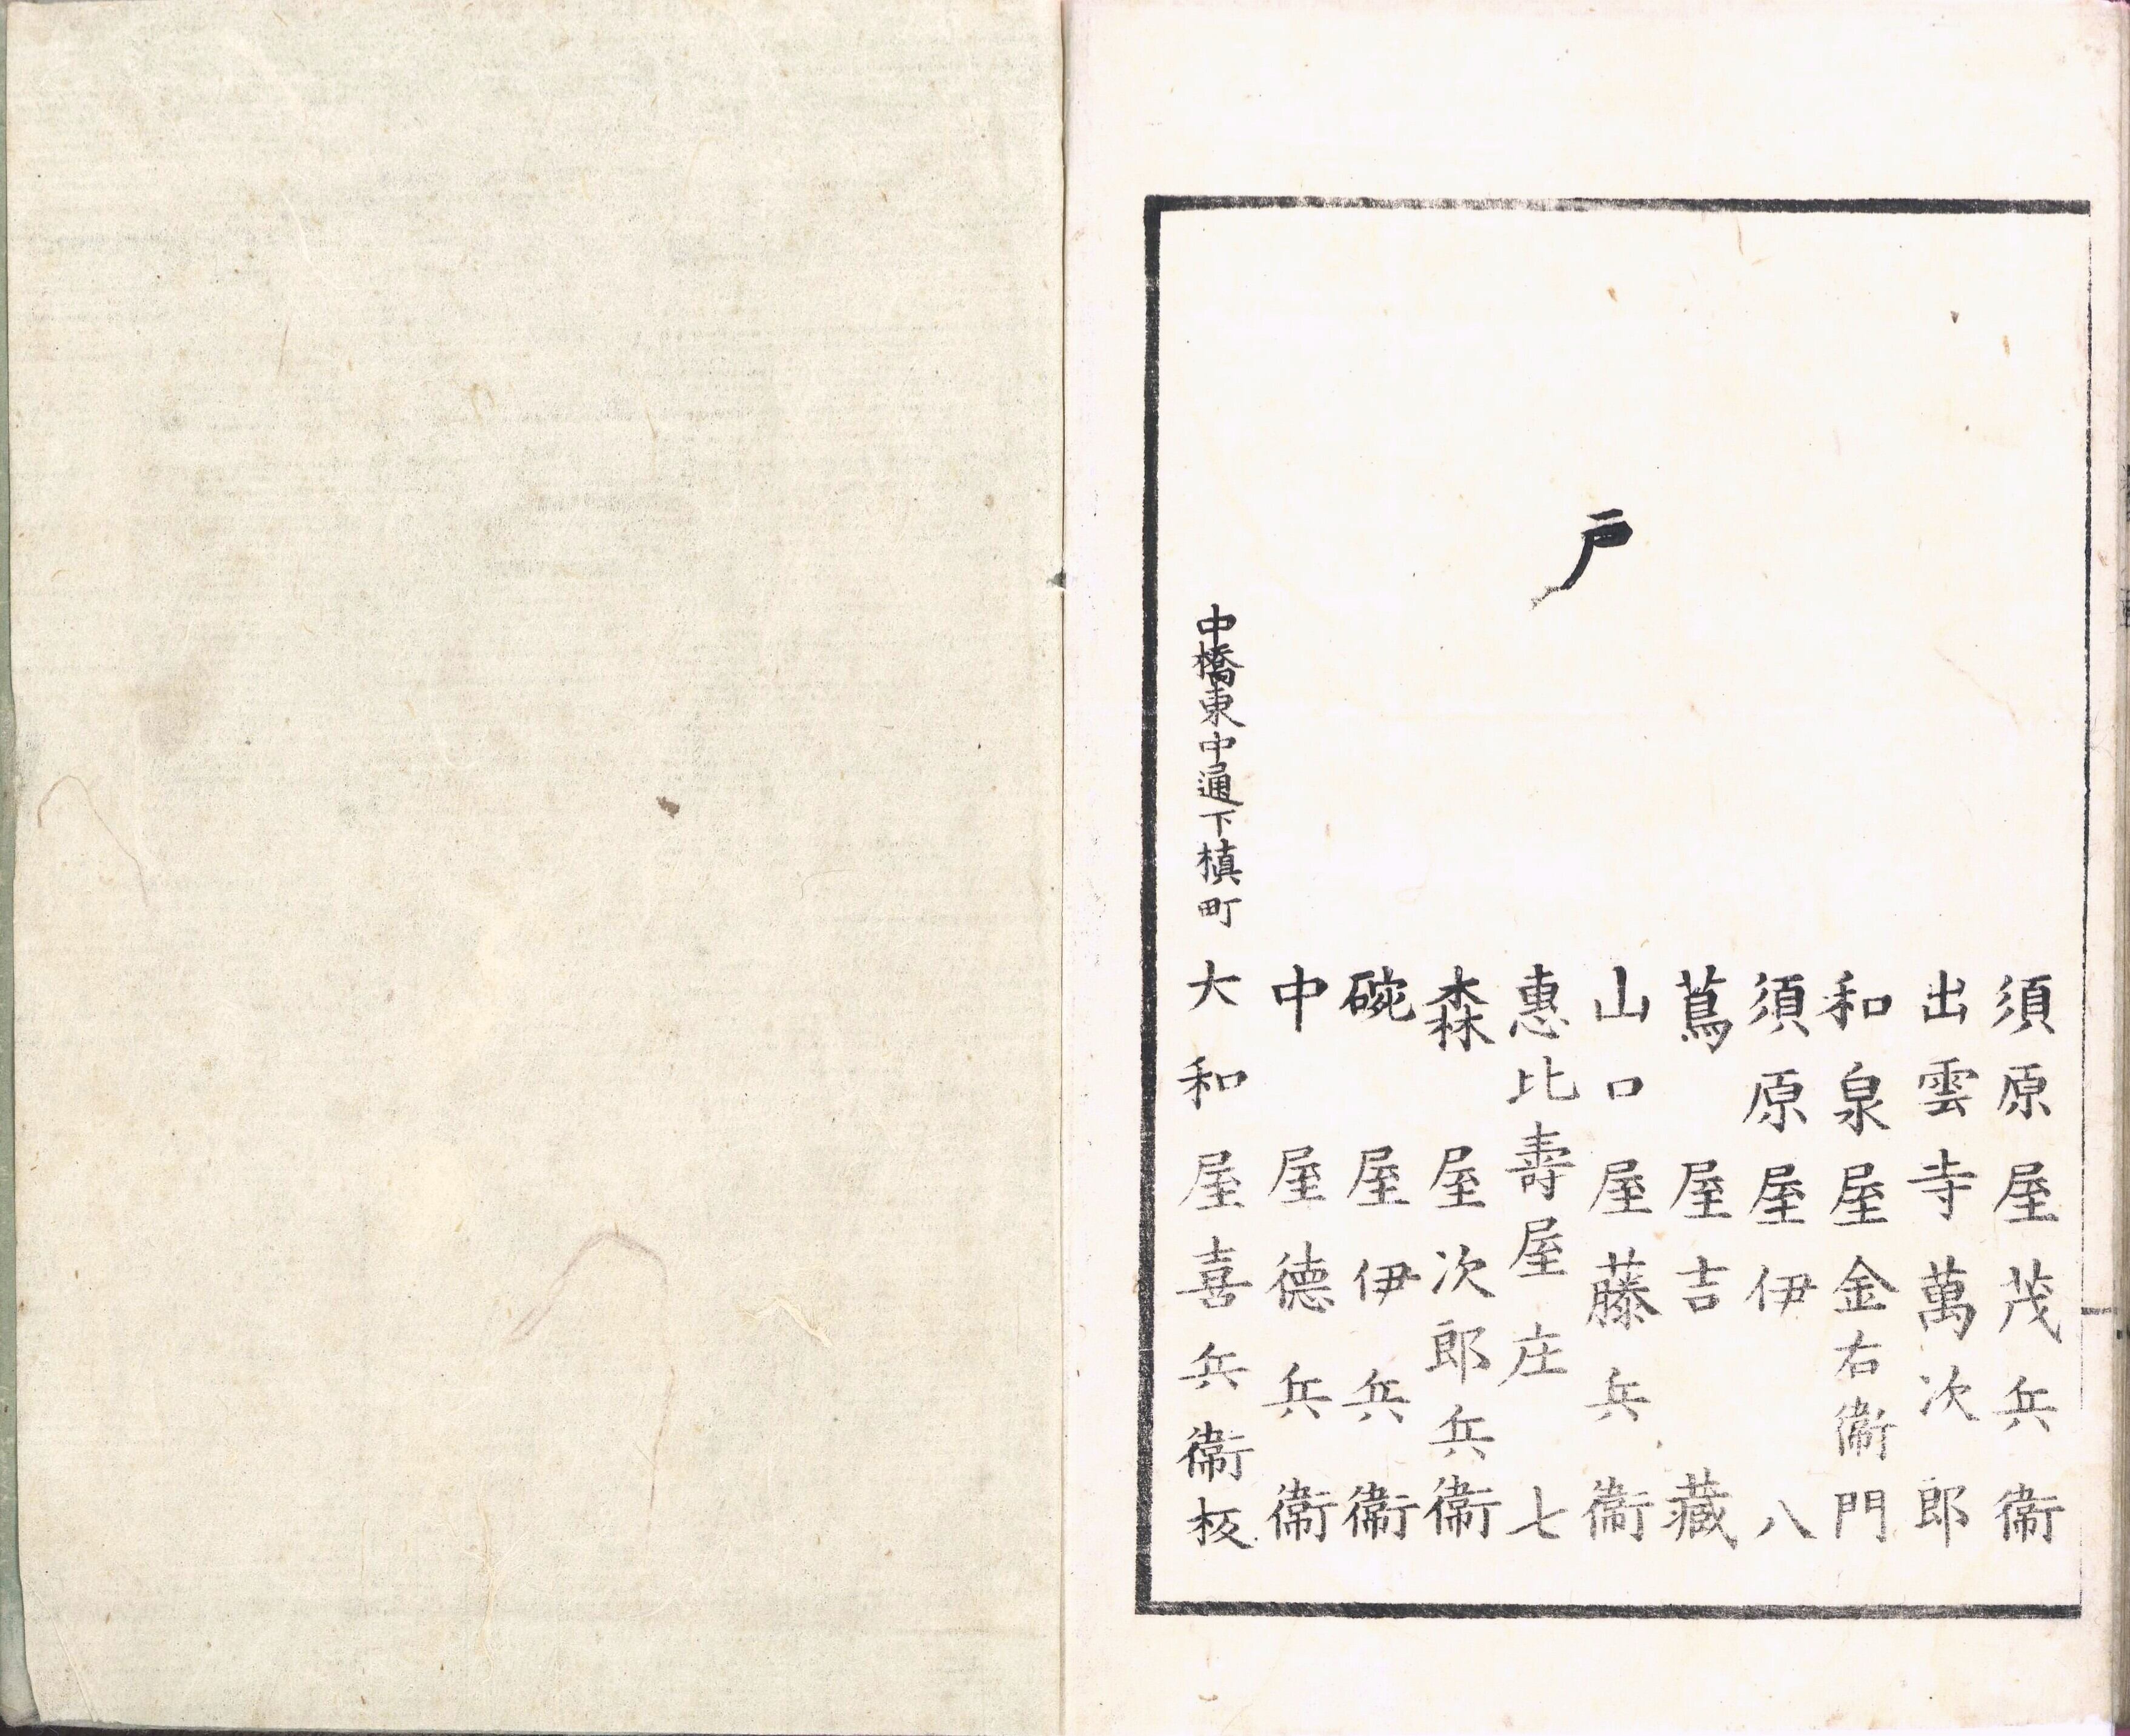 須原屋茂兵衞
出雲寺萬次郎
和泉屋金右衞門
須原屋伊八
蔦屋吉藏
戸
山口屋藤兵衞
惠比壽屋庄七
森屋次郎兵衞
碗屋伊兵衞
中屋德兵衞
中橋東中通下槙町
大和屋喜兵衞板